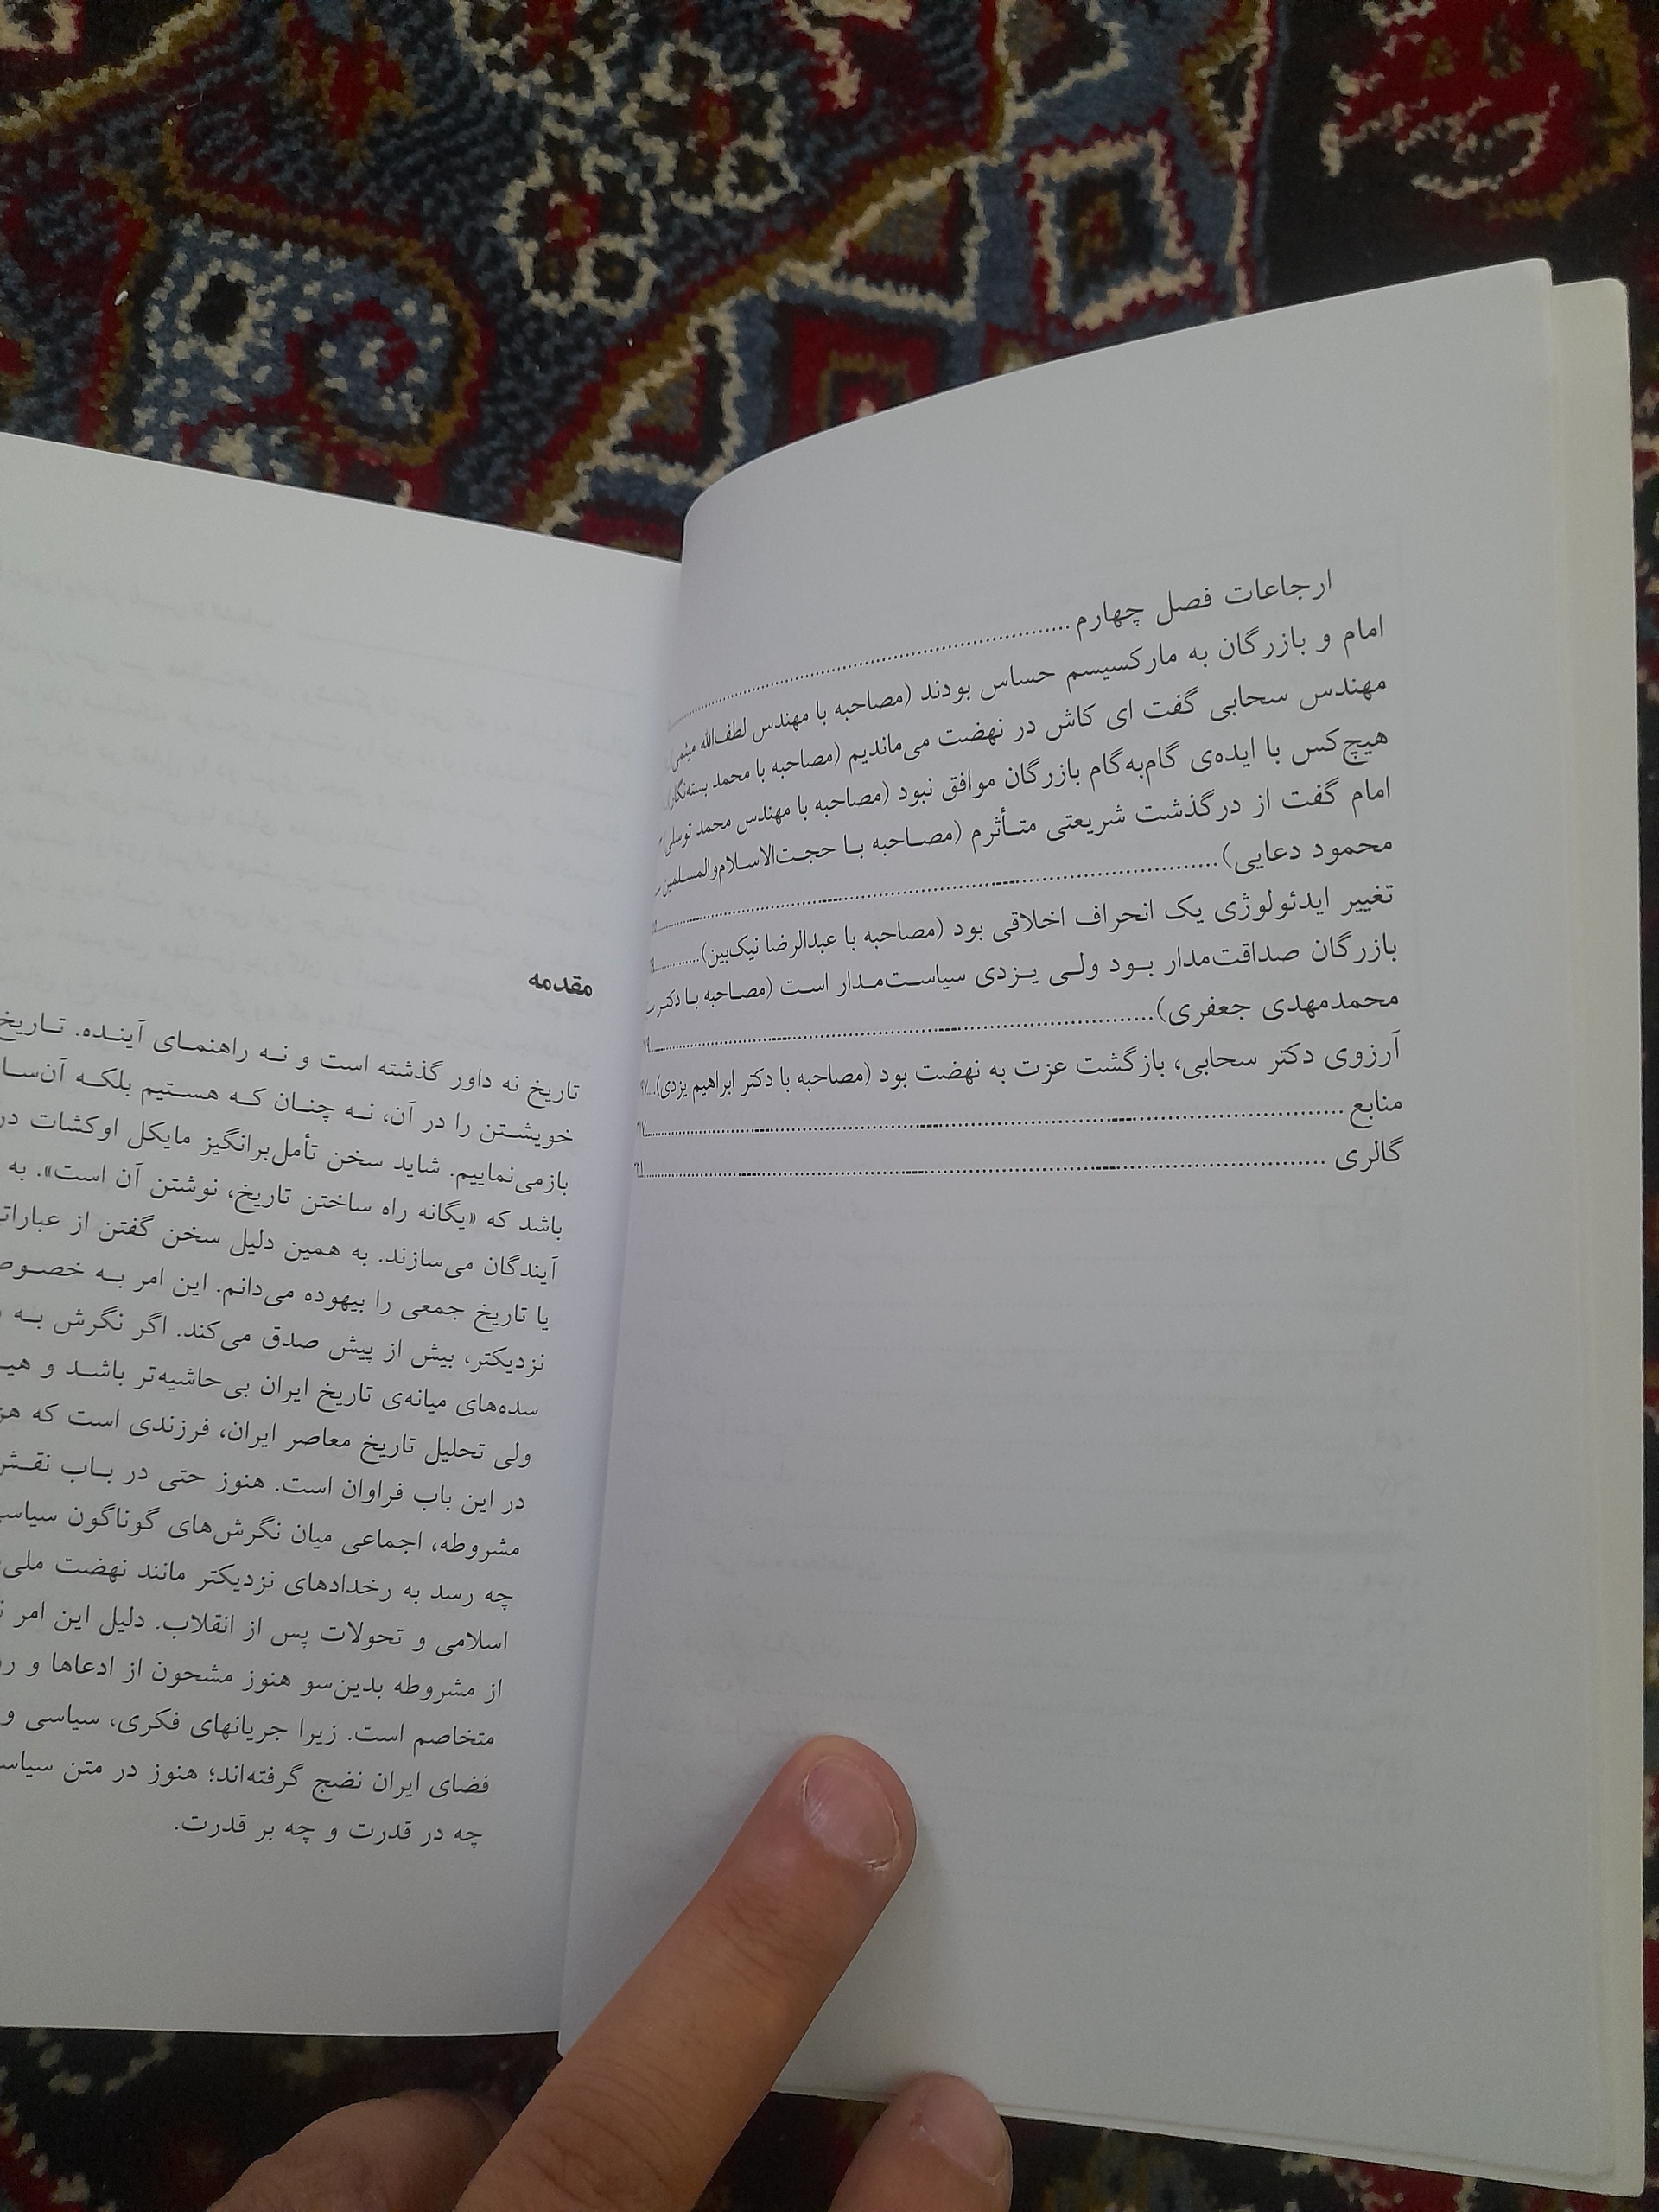 ارجاعات فصل چهارم
امام و بازرگان به مارکسیسم حساس بودند (مصاحبه با مهندس لطف‌الله میثمی)
مهندس سحابی گفت ای کاش در نهضت می‌ماندیم (مصاحبه با محمد بسته‌نگار)
هیچ‌کس با ایده‌ی گام‌به‌گام بازرگان موافق نبود (مصاحبه با مهندس محمد توسلی)
امام گفت از درگذشت شریعتی متأثرم (مصاحبه با حجت‌الاسلام‌والمسلمین
محمود دعایی)
تغییر ایدئولوژی یک انحراف اخلاقی بود (مصاحبه با عبدالرضا نیک‌بین)
بازرگان صداقت‌مدار بود ولی یزدی سیاست‌مدار است (مصاحبه با دکتر
محمدمهدی جعفری)
آرزوی دکتر سحابی، بازگشت عزت به نهضت بود (مصاحبه با دکتر ابراهیم یزدی)
منابع
گالری
مقدمه
تاریخ نه داور گذشته است و نه راهنمای آینده. تاریخ
خویشتن را در آن، نه چنان که هستیم بلکه
بازمی‌نماییم. شاید سخن تأمل‌برانگیز مایکل اوکشات
باشد که «یگانه راه ساختن تاریخ، نوشتن آن است». به
آیندگان می‌سازند. به همین دلیل سخن گفتن از
یا تاریخ جمعی را بیهوده می‌دانم. این امر به
نزدیکتر، بیش از پیش صدق می‌کند. اگر نگرش به
سده‌های میانه‌ی تاریخ ایران بی‌حاشیه‌تر باشد و
ولی تحلیل تاریخ معاصر ایران، فرزندی است که
در این باب فراوان است. هنوز حتی در باب نقش
مشروطه، اجماعی میان نگرش‌های گوناگون
چه رسد به رخدادهای نزدیکتر مانند نهضت ملی
اسلامی و تحولات پس از انقلاب. دلیل این امر
از مشروطه بدین‌سو هنوز مشحون از ادعاها و
متخاصم است. زیرا جریانهای فکری، سیاسی و
فضای ایران نضج گرفته‌اند؛ هنوز در متن
چه در قدرت و چه بر قدرت.